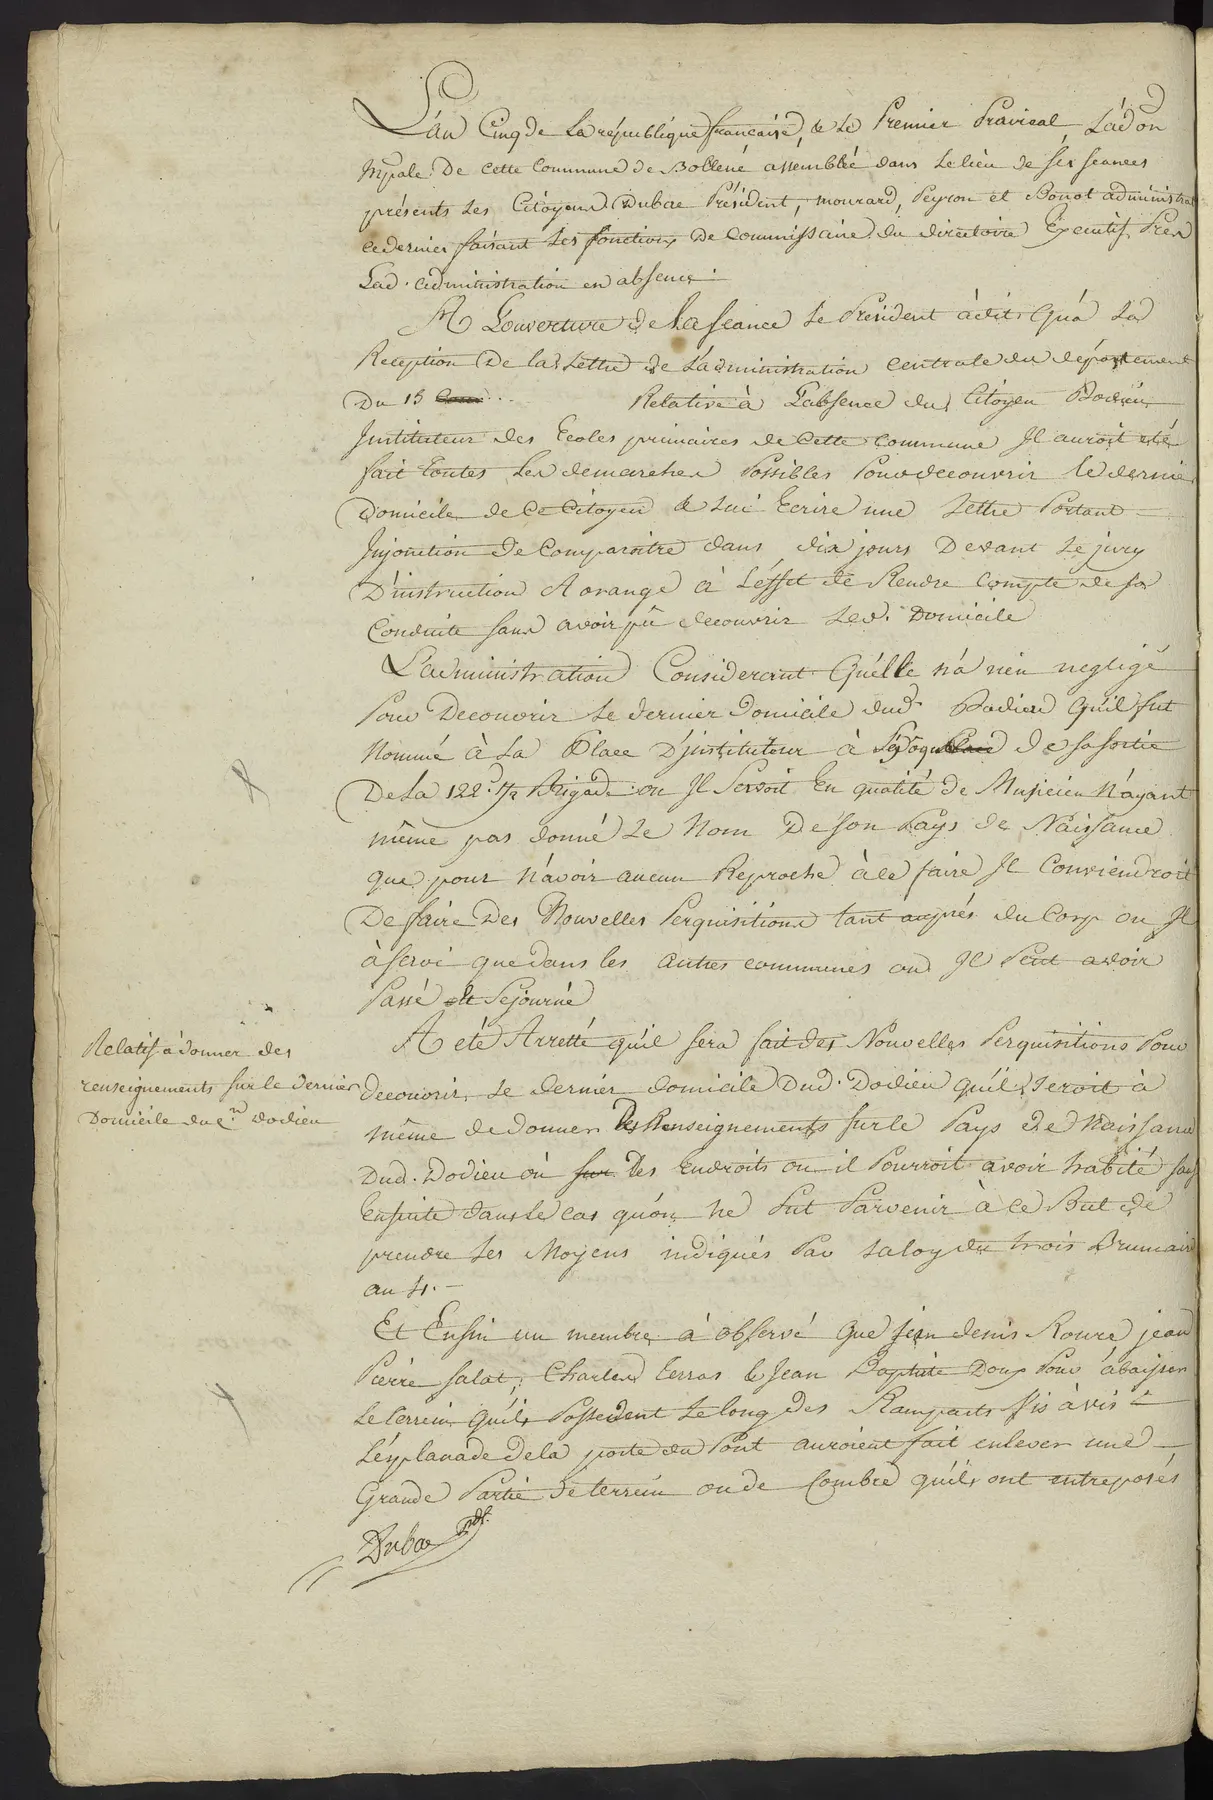 L'an Cinq de La république française, & Le Premier Prairial L'ad.on
mpale De cette Commune de Bollene assemblée dans Le lieu de ses seances
présents Les Citoyens Dubac Président, mourard, Peyron et Bonot administrat
ce dernier faisant Les fonctions De Commissaire du directoire Executif Pres
Lad. administration en absence.
A L'ouverture de la séance Le Président à dit Qu'à La
Reception De la Lettre de L'administration centrale du département
Du 15 ... Relative à L'absence du Citoyen Dodieu
Instituteur des Ecoles primaires de cette commune Il auroit eté
fait toutes Les demarches Possibles Pour decouvrir le dernier
Domicile de Ce Citoyen & Lui Ecrire une Lettre Portant
Injonction de Comparoitre dans dix jours Devant Le jury
D'instruction A orange à L'effet de Rendre Compte de sa
Conduite sans avoir pû decouvrir Led. Domicile
L'administration Considerant Qu'elle n'a rien negligé
Pour Decouvrir Le dernier domicile dud. Dodieu Qu'il fut
Nommé à La Place D'jnstituteur à L'époque de sa sortie
De La 122.e 1/2 Brigade ou Il Servoit En qualité de Musicien N'ayant
même pas donné Le Nom De son Pays de Naissance
que pour N'avoir aucun Reproche à ce faire Il Conviendroit
De faire Des Nouvelles Perquisitions tant auprés du Corp ou Il
à servi que dans les autres communes ou Il Peut avoir
Passé et Sejourné
A eté Arretté qu'il sera fait des Nouvelles Perquisitions Pour
decouvrir Le dernier domicile Dud. Dodieu qu'il seroit à
même de donner des Renseignements sur le Pays de Naissance
Dud. Dodieu où sur les endroits ou il Pourroit avoir habité sauf
Ensuite dans Le cas qu'on ne Put Parvenir à ce But de
prendre Les Moyens indiqués Par La loy du trois Brumaire
an 4.
Relatif à donner des
renseignements sur le dernier
Domicile du C.n dodieu
Et Enfin un membre à observé Que jean denis Roure jean
Pierre salat, Charles Terras & Jean Baptiste Doux Pour abaisser
Le terrein Qu'ils Possedent Le long des Remparts Vis à vis
L'esplanade de la porte du Pont auroient fait enlever une
Grande Partie de terrein ou de Combre qu'ils ont entreposés
Dubac pdt.